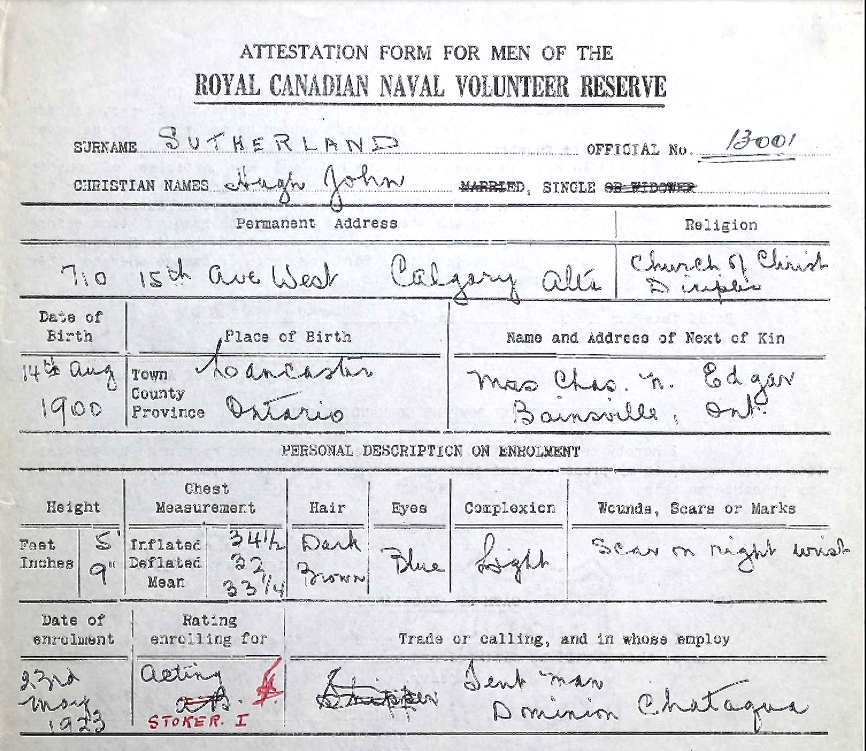 ATTESTATION FORM FOR MEN OF THE
ROYAL CANADIAN NAVAL VOLUNTEER RESERVE
SURNAME SUTHERLAND OFFICIAL No. 13001
CHRISTIAN NAMES Hugh John MARRIED, SINGLE OR WIDOWER
Permanent Address Religion
710 15th Ave West Calgary Alta Church of Christ
Disciples
Date of Birth Place of Birth Name and Address of Next of Kin
14th Aug 1900 Town County Province Lancaster Ontario Mrs Chas. N. Edgar
Bainsville, Ont.
PERSONAL DESCRIPTION ON ENROLMENT
Height Chest Measurement Hair Eyes Complexion Wounds, Scars or Marks
Feet 5' Inflated 34 1/2 Dark Blue Light Scar on right wrist
Inches 9" Deflated 32 Brown
Mean 33 1/4
Date of enrolment Rating enrolling for Trade or calling, and in whose employ
23rd Acting Tent man
May A.B. Dominion Chataqua
1923 STOKER. I